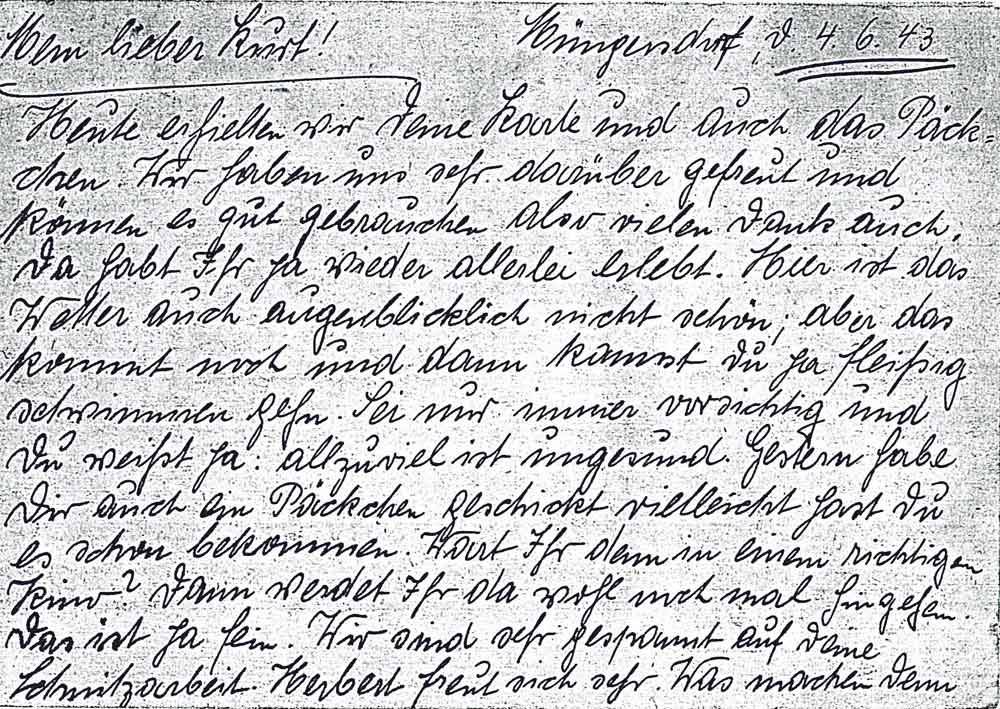 Mein lieber Kurt! Müngersdorf, d. 4. 6. 43
Heute erhielten wir Deine Karte und auch das Päck-
chen. Wir haben uns sehr darüber gefreut und
können es gut gebrauchen also vielen Dank auch.
Da habt Ihr ja wieder allerlei erlebt. Hier ist das
Wetter auch augenblicklich nicht schön; aber das
kommt noch und dann kannst Du ja fleißig
schwimmen gehn. Sei nur immer vorsichtig und
Du weißt ja: allzuviel ist ungesund. Gestern habe
Dir auch ein Päckchen geschickt vielleicht hast Du
es schon bekommen. Wart Ihr denn in einem richtigen
Kino? Dann werdet Ihr da wohl noch mal hingehen.
Das ist ja fein. Wir sind sehr gespannt auf Deine
Schnitzarbeit. Herbert freut sich sehr. Was machen denn